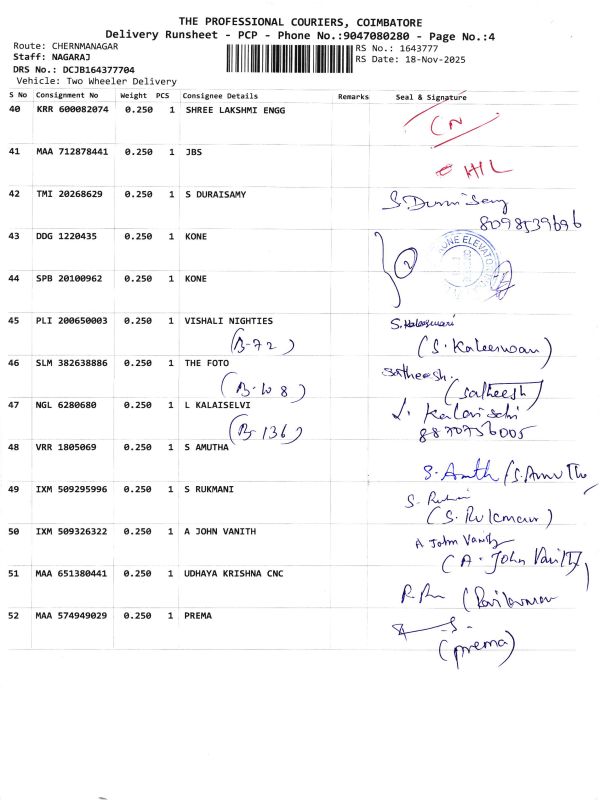 THE PROFESSIONAL COURIERS, COIMBATORE
Delivery Runsheet - PCP - Phone No.:9047080280 - Page No.:4
Route: CHERNMANAGAR
RS No.: 1643777
Staff: NAGARAJ
RS Date: 18-Nov-2025
DRS No.: DCJB164377704
Vehicle: Two Wheeler Delivery
S No Consignment No Weight PCS Consignee Details Remarks Seal & Signature
40 KRR 600082074 0.250 1 SHREE LAKSHMI ENGG CN
41 MAA 712878441 0.250 1 JBS
42 TMI 20268629 0.250 1 S DURAISAMY
8098539696
43 DDG 1220435 0.250 1 KONE 2
KONE ELEVATOR
44 SPB 20100962 0.250 1 KONE
45 PLI 200650003 0.250 1 VISHALI NIGHTIES
(B-72)
46 SLM 382638886 0.250 1 THE FOTO satheesh.
(B-108) (satheesh)
47 NGL 6280680 0.250 1 L KALAISELVI
(B-136) 8870756005
48 VRR 1805069 0.250 1 S AMUTHA
49 IXM 509295996 0.250 1 S RUKMANI
50 IXM 509326322 0.250 1 A JOHN VANITH A John Vanith
(A. John Vanith)
51 MAA 651380441 0.250 1 UDHAYA KRISHNA CNC
52 MAA 574949029 0.250 1 PREMA
(prema)